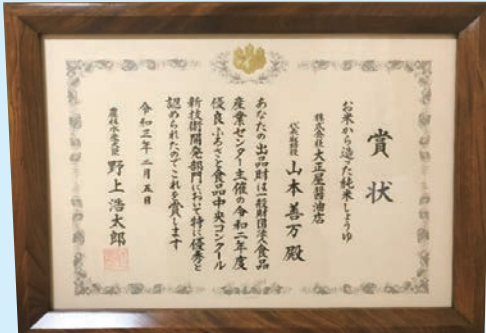 賞状
お米から造った純米しょうゆ
株式会社大正屋醤油店
代表取締役 山本善万殿
あなたの出品財は一般財団法人食品
産業センター主催の令和二年度
優良ふるさと食品中央コンクール
新技術開発部門において特に優秀と
認められたのでこれを賞します
令和三年二月五日
農林水産大臣 野上浩太郎